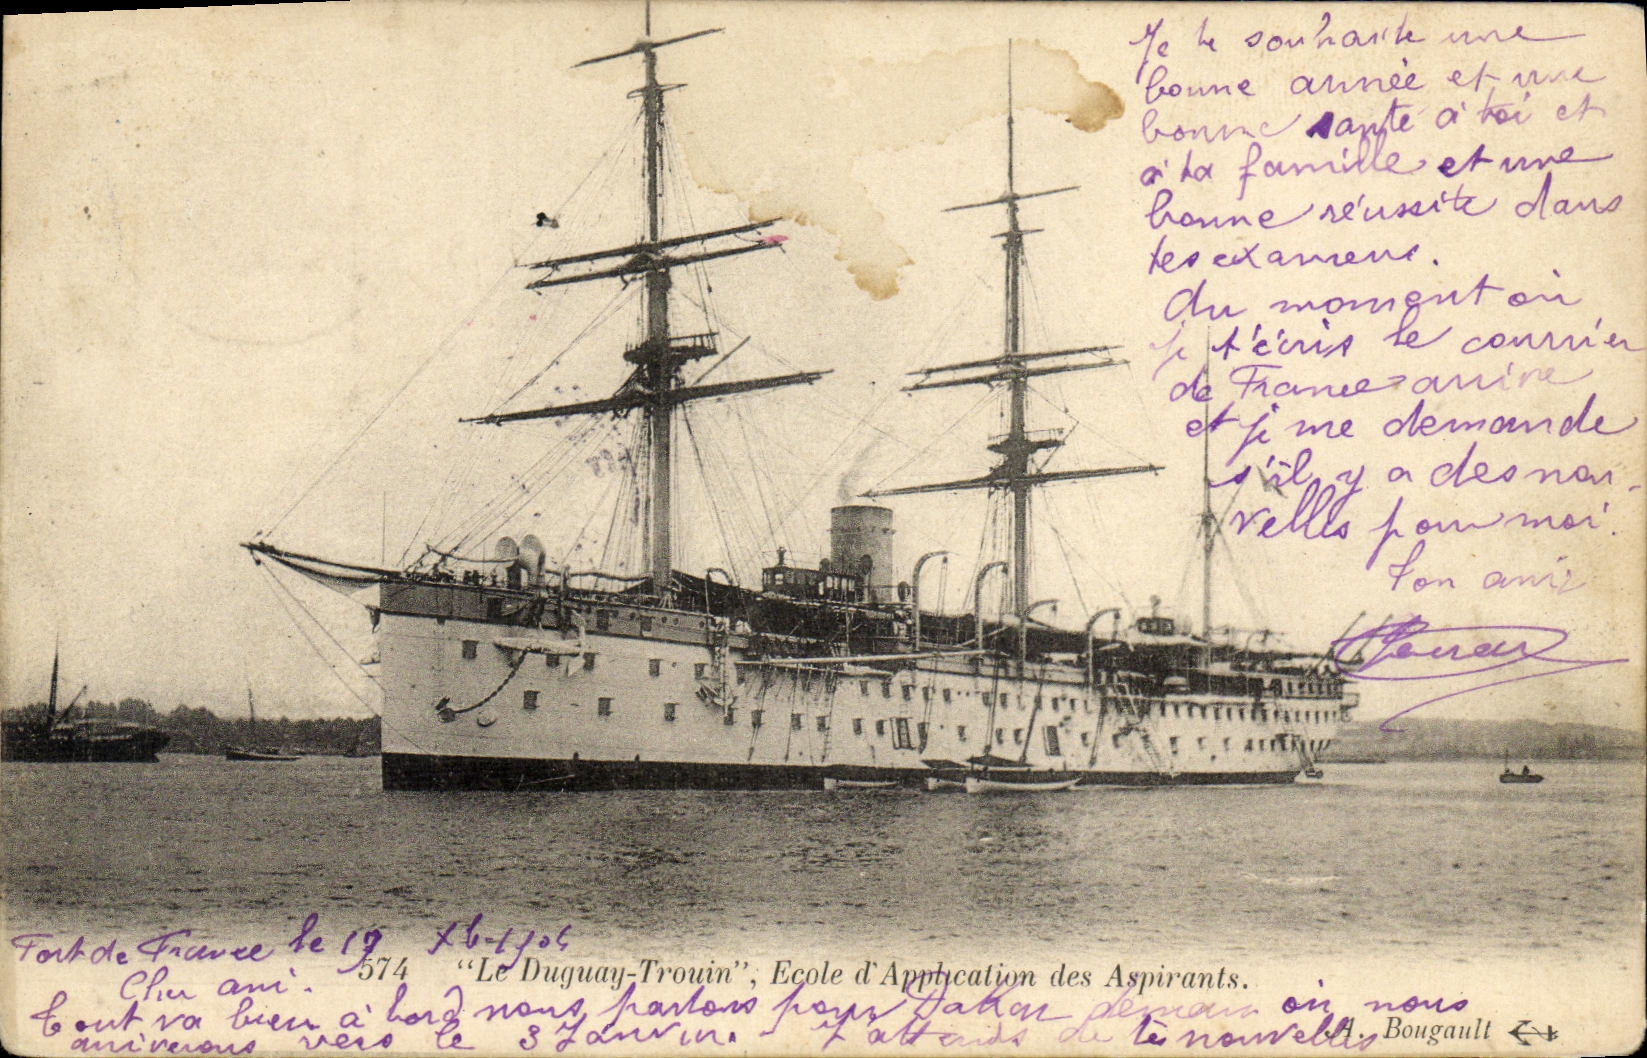 Fort de France le 17 Xb-1904
574 "Le Duguay-Trouin", Ecole d'Application des Aspirants.
Cher ami.
Tout va bien à bord nous partons pour Dakar demain où nous
arriverons vers le 3 Janvier. - J'attends de tes nouvelles
A. Bougault
Je te souhaite une
bonne année et une
bonne santé à toi et
à ta famille et une
bonne réussite dans
tes examens.
Du moment où
je t'écris le courrier
de France arrive
et je me demande
s'il y a des nou-
velles pour moi.
Ton ami